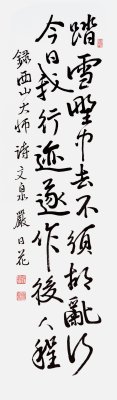 踏雪野中去不須胡亂行
今日我行迹遂作後人程
錄西山大師詩 文泉 嚴日花